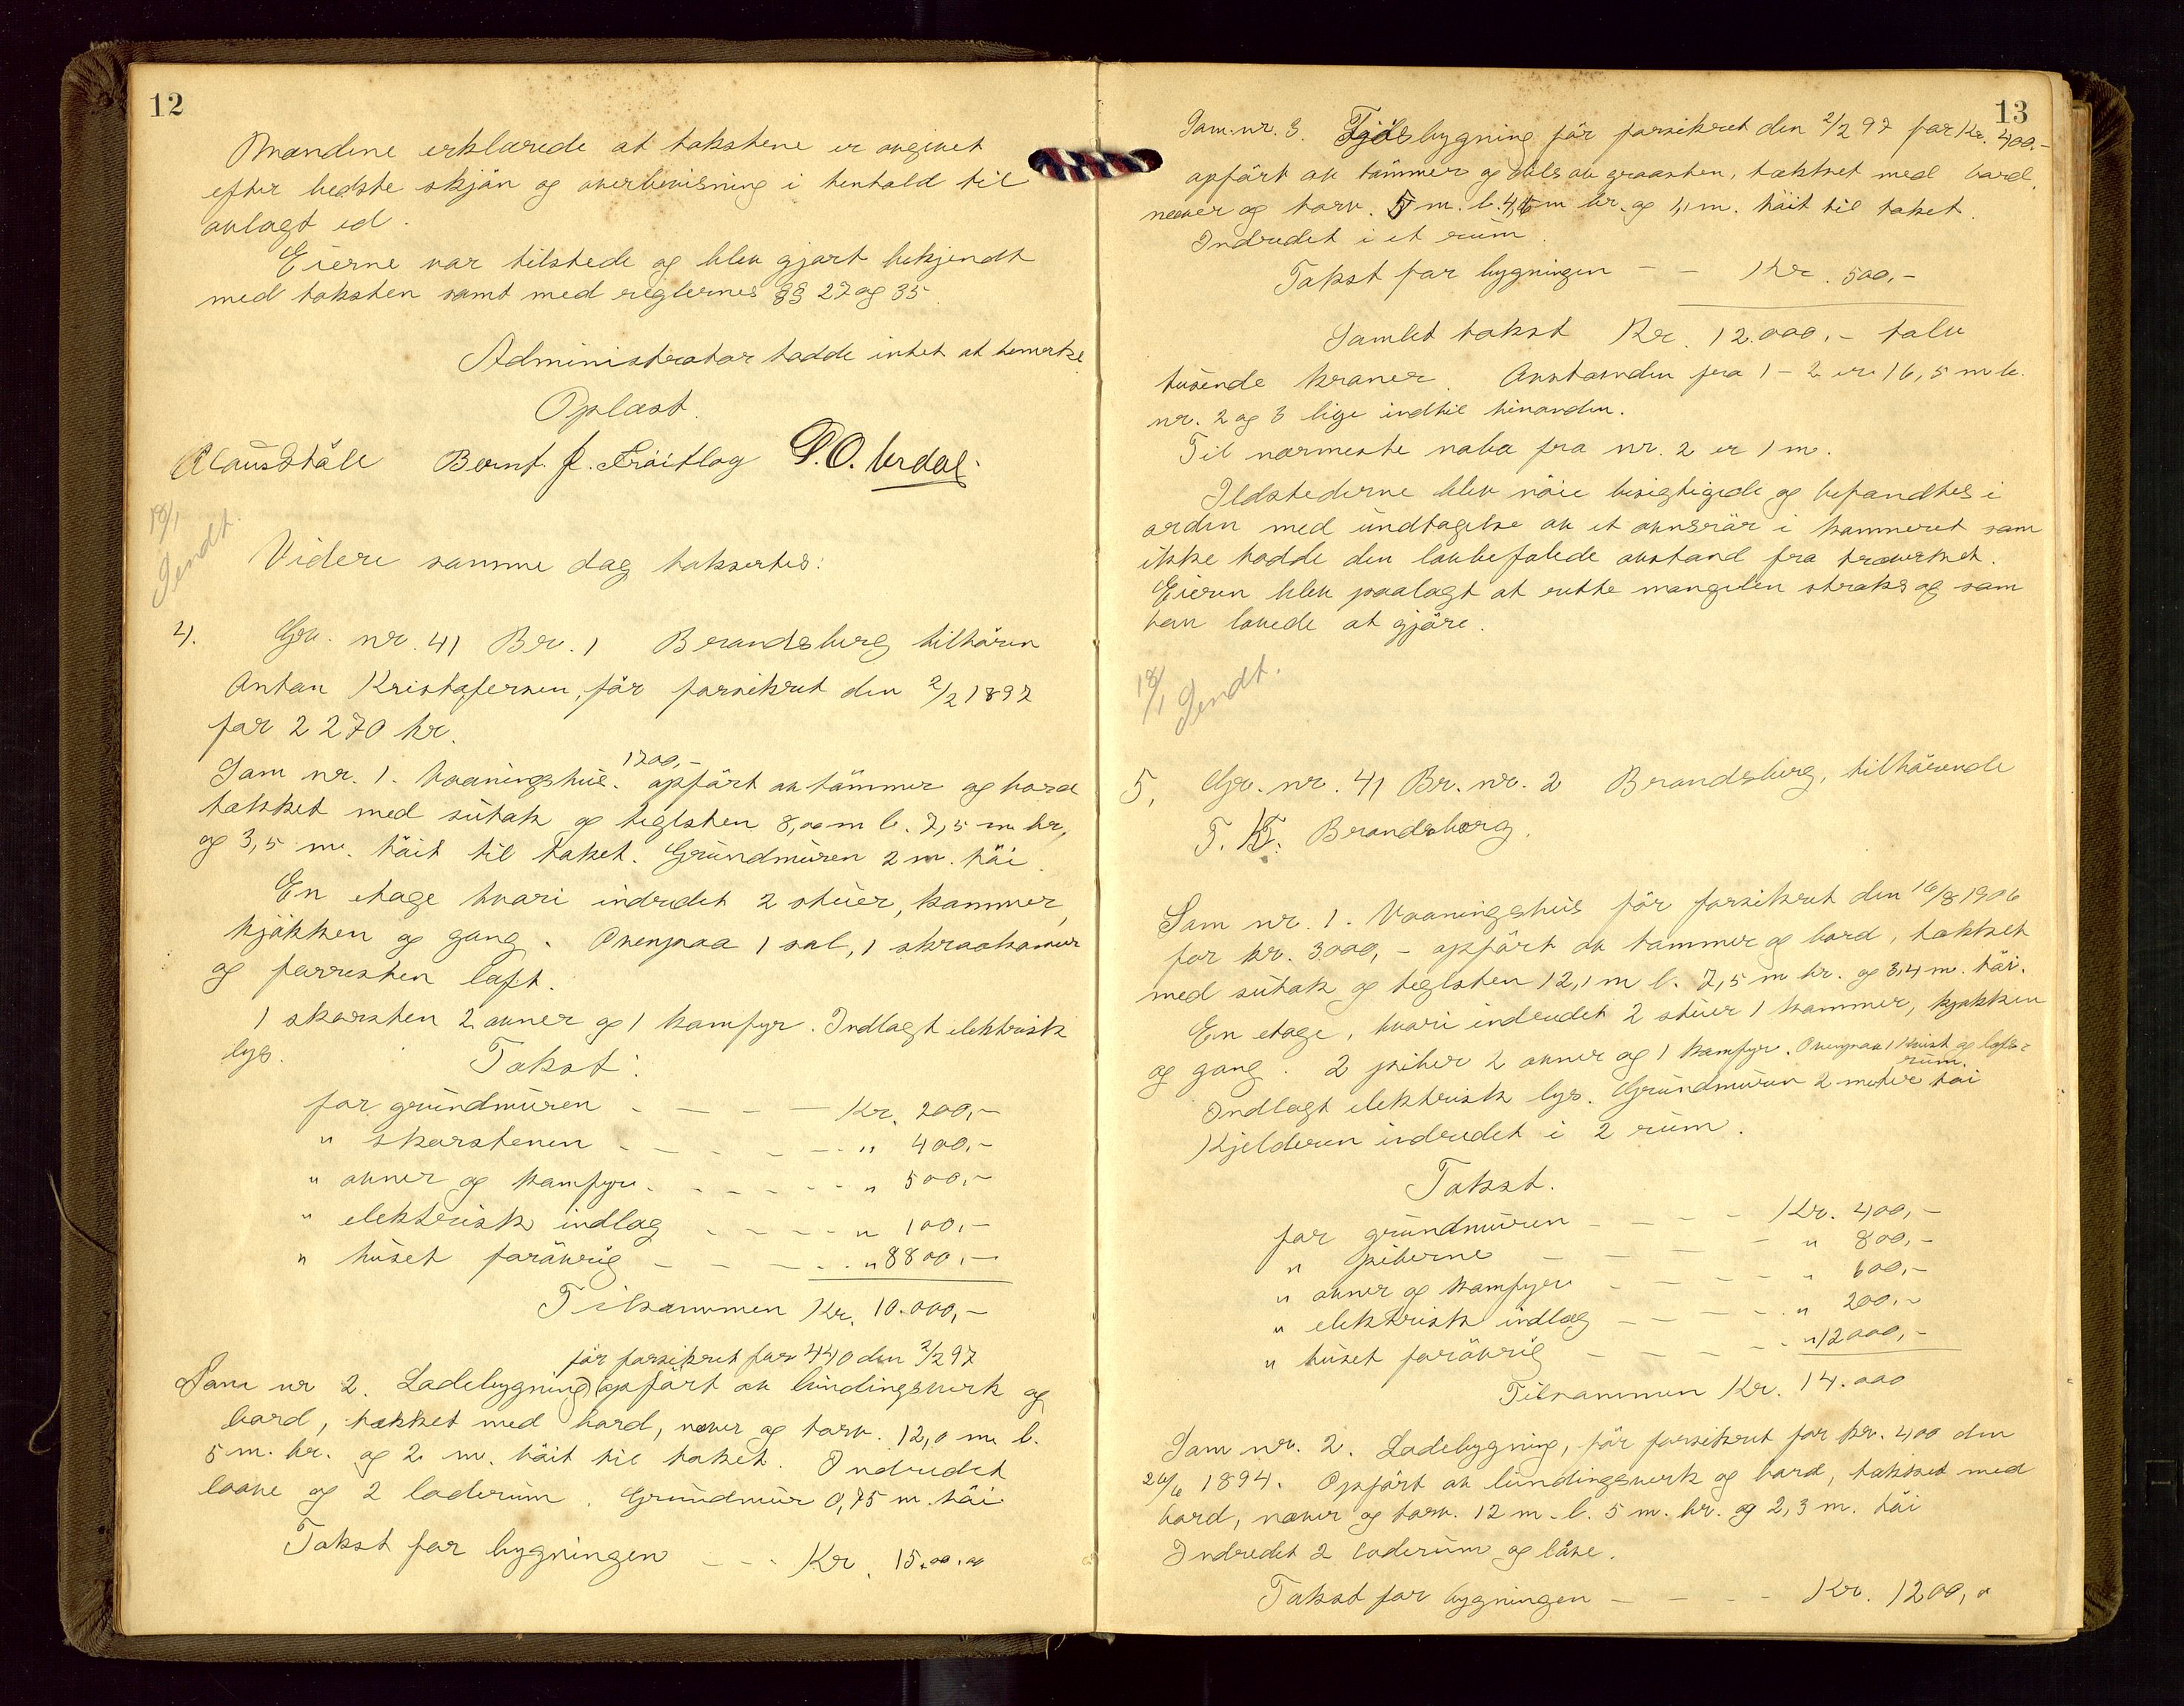 12
Mændene erklærede at takstene er avgivet
efter bedste skjön og overbevisning i henhold til
avlagt ed.
Eierne var tilstede og blev gjort bekjendt
med taksten samt med reglernes §§ 27 og 35
Administrator hadde intet at bemerke
Oplæst.
Bernt. J. P.O. Urdal.
18/1
Sendt.
Videre samme dag taksertes:
4. Gr. nr. 41 Br. 1 Brandsberg tilhören
Anton Kristofersen, för forsikret den 2/2 1897
for 2270 kr.
1700,-
Som nr. 1. Vaaningshus. opfört av tömmer og bord
tækket med sutak og teglsten 8,00 m l. 7,5 m br,
og 3,5 m. höit til taket. Grundmuren 2 m. höi.
En etage hvori indredet 2 stuer, kammer,
kjökken og gang. Ovenpaa 1 sal, 1 skraakamer
og forresten loft.
1 skorsten 2 ovner og 1 komfyr. Indlagt elektrisk
lys. Takst:
for grundmuren - - - - Kr. 200,-
" skorstenen - - - - - " 400,-
" ovner og komfyr - - - - - " 500,-
" elektrisk indlag - - - - " 100,-
" huset forövrig - - - - " 8800,-
Tilsammen Kr. 10.000,-
för forsikret for 440 den 2/2 97
Som nr 2. Ladebygning opfört av bindingsverk og
bord, tækket med bord, never og torv. 12,0 m l.
5 m. br. og 2 m. höit til taket. Indredet
laave og 2 laderum. Grundmur 0,75 m. höi
Takst for bygningen - - - Kr. 15.00.00
13
Som nr. 3. Fjösbygning för forsikret den 2/2 97 for Kr. 400.-
opfört av tömmer og dels av graasten, tækket med bord,
never og torv. 5 m. l. m br. og m. höit til taket.
Indredet i et rum.
Takst for bygningen - - Kr. 500,-
Samlet takst Kr. 12.000,- tolv
tusende kroner. Avstanden fra 1 - 2 er 16,5 m
nr. 2 og 3 lige indtil hinanden.
Til nærmeste nabo fra nr. 2 er 1 m.
Ildstederne blev nöie besigtigede og befandtes i
orden med undtagelse av et ovnsrör i kammeret som
ikke hadde den lovbefalede avstand fra træverket.
Eieren blev paalagt at rette mangelen straks og som
han lovede at gjöre.
18/1
Sendt.
5. Gr. nr. 41 Br. nr. 2 Brandsberg, tilhörende
T. T. Brandsberg.
Som nr. 1. Vaaningshus för forsikret den 16/8 1906
for kr. 3000,- opfört av tømmer og bord, tækket
med sutak og teglsten 12,1 m l. 7,5 m br. og 3,4 m. höi.
En etage, hvori indredet 2 stuer 1 kammer, kjøkken
og gang. 2 piber 2 ovner og 1 komfyr. Ovenpaa 1 kvist og lofts-
rum.
Indlagt elektrisk lys. Grundmuren 2 meter höi
Kjelderen indredet i 2 rum.
Takst.
for grundmuren - - - - Kr. 400,-
" piberne - - - - " 800,-
" ovner og komfyr - - - - " 600,-
" elektrisk indlag - - - - " 200,-
" huset forövrig - - - - " 12000,-
Tilsammen Kr. 14.000
Som nr. 2. Ladebygning, för forsikret for kr. 400 den
26/6 1894. Opfört av bindingsverk og bord, tækket med
bord, never og torv. 12 m. l. 5 m. br. og 2,3 m. höi
Indredet 2 laderum og låve.
Takst for bygningen - - - Kr. 1200,0